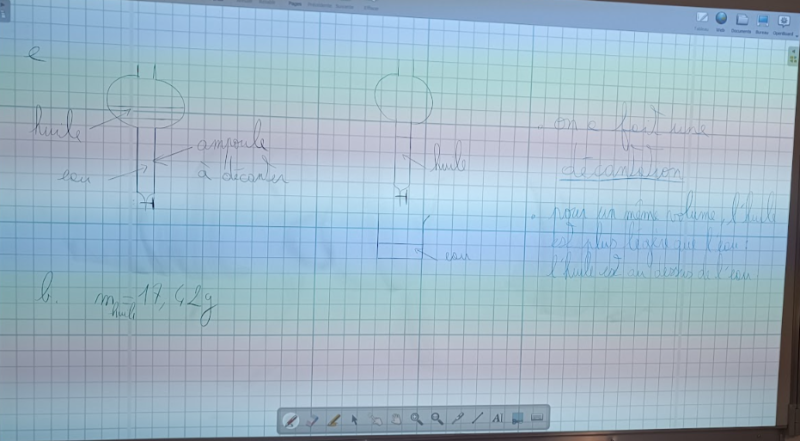 e
huile
eau
ampoule
à décanter
huile
eau
. on a fait une
décantation
. pour un même volume, l'huile
est plus légère que l'eau :
l'huile est au dessus de l'eau
b. m huile = 17,42g